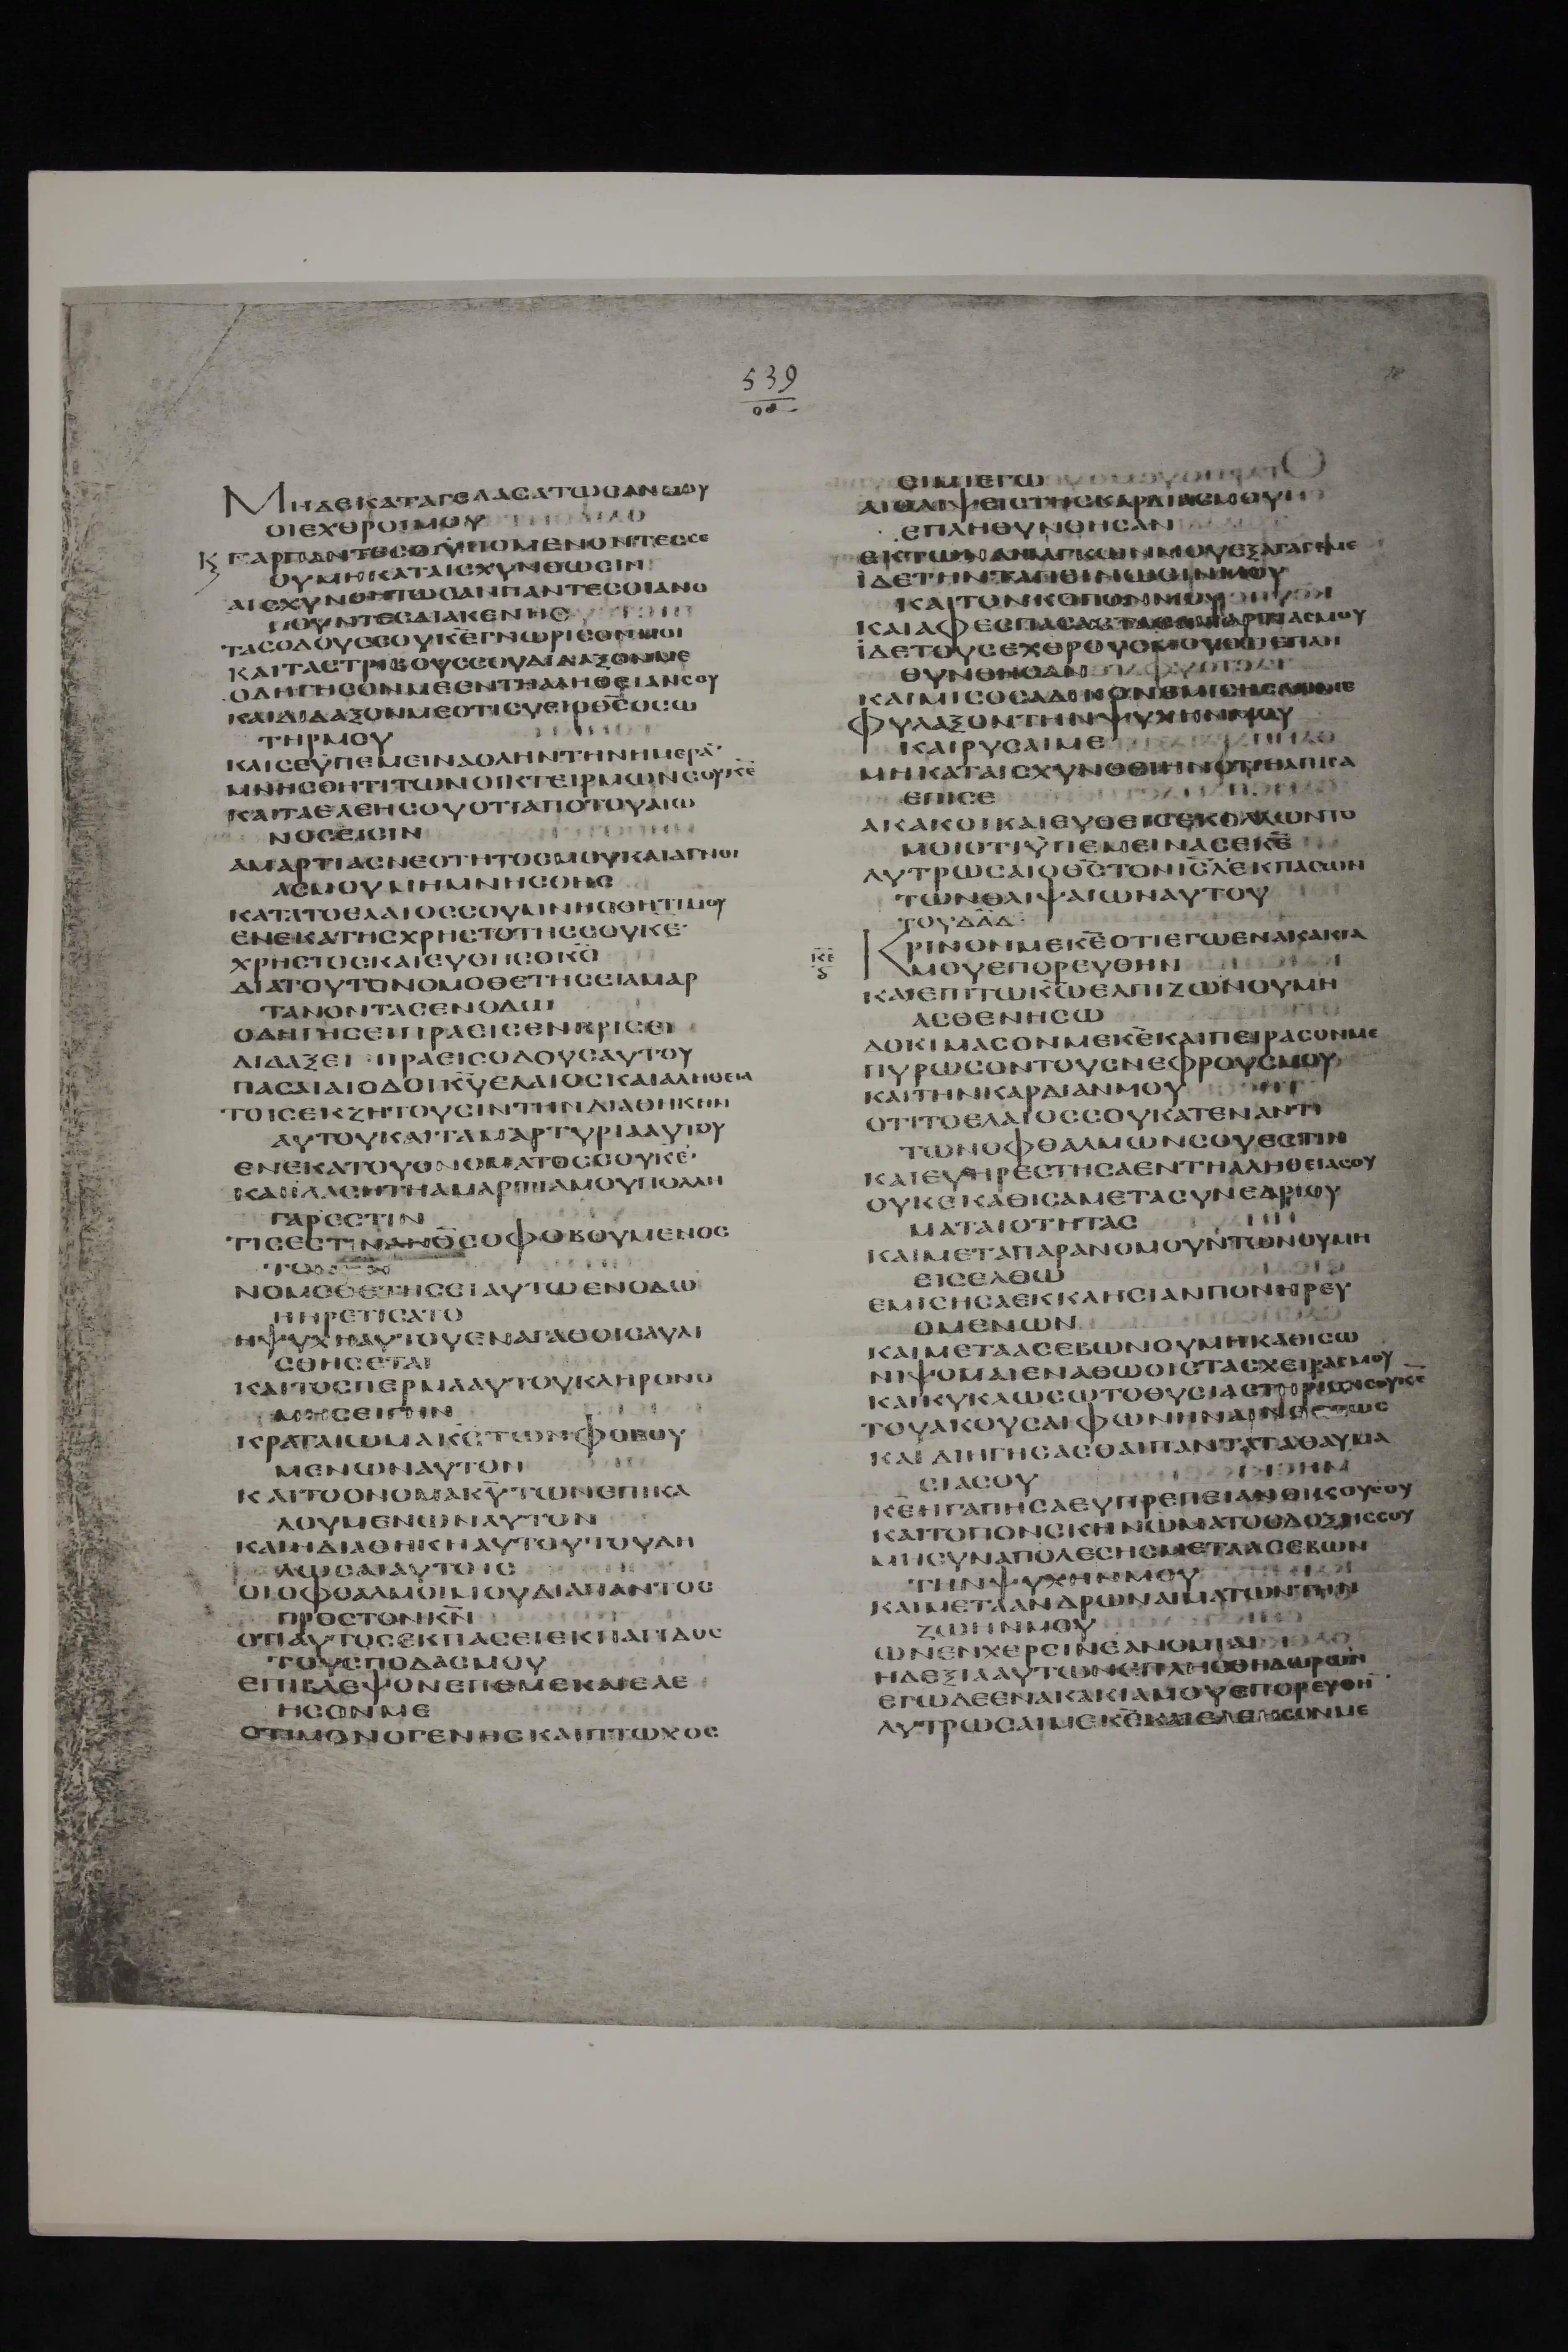 539
ΜΗΔΕΚΑΤΑΓΕΛΑΣΑΤΩΣΑΝΜΟΥ
ΟΙΕΧΘΡΟΙΜΟΥ
Κ ΓΑΡΠΑΝΤΕΣΟΙΫΠΟΜΕΝΟΝΤΕΣΣΕ
ΟΥΜΗΚΑΤΑΙΣΧΥΝΘΩΣΙΝ
ΑΙΣΧΥΝΘΗΤΩΣΑΝΠΑΝΤΕΣΟΙΑΝΟ
ΜΟΥΝΤΕΣΔΙΑΚΕΝΗΣ
ΤΑΣΟΔΟΥΣΣΟΥΚ̅Ε̅ΓΝΩΡΙΣΟΝΜΟΙ
ΚΑΙΤΑΣΤΡΙΒΟΥΣΣΟΥΔΙΔΑΞΟΝΜΕ
ΟΔΗΓΗΣΟΝΜΕΕΝΤΗΑΛΗΘΕΙΑΝΣΟΥ
ΚΑΙΔΙΔΑΞΟΝΜΕΟΤΙΣΥΕΙΟΘ̅Σ̅ΟΣΩ
ΤΗΡΜΟΥ
ΚΑΙΣΕΫΠΕΜΕΙΝΑΟΛΗΝΤΗΝΗΜΕΡΑ̅
ΜΝΗΣΘΗΤΙΤΩΝΟΙΚΤΕΙΡΜΩΝΣΟΥΚ̅Ε̅
ΚΑΙΤΑΕΛΕΗΣΟΥΟΤΙΑΠΟΤΟΥΑΙΩ
ΝΟΣΕΙΣΙΝ
ΑΜΑΡΤΙΑΣΝΕΟΤΗΤΟΣΜΟΥΚΑΙΑΓΝΟΙ
ΑΣΜΟΥΜΗΜΝΗΣΘΗΣ
ΚΑΤΑΤΟΕΛΑΙΟΣΣΟΥΜΝΗΣΘΗΤΙΜΟΥ
ΕΝΕΚΑΤΗΣΧΡΗΣΤΟΤΗΣΣΟΥΚ̅Ε̅
ΧΡΗΣΤΟΣΚΑΙΕΥΘΗΣΟΚ̅Σ̅
ΔΙΑΤΟΥΤΟΝΟΜΟΘΕΤΗΣΕΙΑΜΑΡ
ΤΑΝΟΝΤΑΣΕΝΟΔΩΙ
ΟΔΗΓΗΣΕΙΠΡΑΕΙΣΕΝΚΡΙΣΕΙ
ΔΙΔΑΞΕΙΠΡΑΕΙΣΟΔΟΥΣΑΥΤΟΥ
ΠΑΣΑΙΑΙΟΔΟΙΚ̅Υ̅ΕΛΑΙΟΣΚΑΙΑΛΗΘΕΙΑ
ΤΟΙΣΕΚΖΗΤΟΥΣΙΝΤΗΝΔΙΑΘΗΚΗΝ
ΑΥΤΟΥΚΑΙΤΑΜΑΡΤΥΡΙΑΑΥΤΟΥ
ΕΝΕΚΑΤΟΥΟΝΟΜΑΤΟΣΣΟΥΚ̅Ε̅
ΚΑΙΙΛΑΣΗΤΗΑΜΑΡΤΙΑΜΟΥΠΟΛΛΗ
ΓΑΡΕΣΤΙΝ
ΤΙΣΕΣΤΙΝΑΝΟ̅Σ̅ΟΦΟΒΟΥΜΕΝΟΣ
ΤΟΝΚ̅Ν̅
ΝΟΜΟΘΕΤΗΣΕΙΑΥΤΩΕΝΟΔΩ
ΗΗΡΕΤΙΣΑΤΟ
ΗΨΥΧΗΑΥΤΟΥΕΝΑΓΑΘΟΙΣΑΥΛΙ
ΣΘΗΣΕΤΑΙ
ΚΑΙΤΟΣΠΕΡΜΑΑΥΤΟΥΚΛΗΡΟΝΟ
ΜΗΣΕΙΓΗΝ
ΚΡΑΤΑΙΩΜΑΚ̅Σ̅ΤΩΝΦΟΒΟΥ
ΜΕΝΩΝΑΥΤΟΝ
ΚΑΙΤΟΟΝΟΜΑΚ̅Υ̅ΤΩΝΕΠΙΚΑ
ΛΟΥΜΕΝΩΝΑΥΤΟΝ
ΚΑΙΗΔΙΑΘΗΚΗΑΥΤΟΥΤΟΥΔΗ
ΛΩΣΑΙΑΥΤΟΙΣ
ΟΙΟΦΘΑΛΜΟΙΜΟΥΔΙΑΠΑΝΤΟΣ
ΠΡΟΣΤΟΝΚ̅Ν̅
ΟΤΙΑΥΤΟΣΕΚΠΑΣΕΙΕΚΠΑΓΙΔΟΣ
ΤΟΥΣΠΟΔΑΣΜΟΥ
ΕΠΙΒΛΕΨΟΝΕΠΕΜΕΚΑΙΕΛΕ
ΗΣΟΝΜΕ
ΟΤΙΜΟΝΟΓΕΝΗΣΚΑΙΠΤΩΧΟΣ
ΕΙΜΙΕΓΩ
ΑΙΘΛΙΨΕΙΣΤΗΣΚΑΡΔΙΑΣΜΟΥ
ΕΠΛΗΘΥΝΘΗΣΑΝ
ΕΚΤΩΝΑΝΑΓΚΩΝΜΟΥΕΞΑΓΑΓΕΜΕ
ΪΔΕΤΗΝΤΑΠΙΝΩΣΙΝΜΟΥ
ΚΑΙΤΟΝΚΟΠΟΝΜΟΥ
ΚΑΙΑΦΕΣΠΑΣΑΣΤΑΣΑΜΑΡΤΙΑΣΜΟΥ
ΪΔΕΤΟΥΣΕΧΘΡΟΥΣΜΟΥΟΤΙΕΠΛΗ
ΘΥΝΘΗΣΑΝ
ΚΑΙΜΙΣΟΣΑΔΙΚΟΝΕΜΙΣΗΣΑΝΜΕ
ΦΥΛΑΞΟΝΤΗΝΨΥΧΗΝΜΟΥ
ΚΑΙΡΥΣΑΙΜΕ
ΜΗΚΑΤΑΙΣΧΥΝΘΕΙΗΝΟΤΙΗΛΠΙΣΑ
ΕΠΙΣΕ
ΑΚΑΚΟΙΚΑΙΕΥΘΕΙΣΕΚΟΛΛΩΝΤΟ
ΜΟΙΟΤΙΫΠΕΜΕΙΝΑΣΕΚ̅Ε̅
ΛΥΤΡΩΣΑΙΟΘ̅Σ̅ΤΟΝΙ̅Σ̅Λ̅ΕΚΠΑΣΩΝ
ΤΩΝΘΛΙΨΑΙΩΝΑΥΤΟΥ
ΤΟΥΔ̅Α̅Δ̅
Κ̅Ε̅ ΚΡΙΝΟΝΜΕΚ̅Ε̅ΟΤΙΕΓΩΕΝΑΚΑΚΙΑ
ΜΟΥΕΠΟΡΕΥΘΗΝ
ΚΑΙΕΠΙΤΩΚ̅Ω̅ΕΛΠΙΖΩΝΟΥΜΗ
ΑΣΘΕΝΗΣΩ
ΔΟΚΙΜΑΣΟΝΜΕΚ̅Ε̅ΚΑΙΠΕΙΡΑΣΟΝΜΕ
ΠΥΡΩΣΟΝΤΟΥΣΝΕΦΡΟΥΣΜΟΥ
ΚΑΙΤΗΝΚΑΡΔΙΑΝΜΟΥ
ΟΤΙΤΟΕΛΑΙΟΣΣΟΥΚΑΤΕΝΑΝΤΙ
ΤΩΝΟΦΘΑΛΜΩΝΣΟΥΕΣΤΙΝ
ΚΑΙΕΥΗΡΕΣΤΗΣΑΕΝΤΗΑΛΗΘΕΙΑΣΟΥ
ΟΥΚΕΚΑΘΙΣΑΜΕΤΑΣΥΝΕΔΡΙΟΥ
ΜΑΤΑΙΟΤΗΤΑΣ
ΚΑΙΜΕΤΑΠΑΡΑΝΟΜΟΥΝΤΩΝΟΥΜΗ
ΕΙΣΕΛΘΩ
ΕΜΙΣΗΣΑΕΚΚΛΗΣΙΑΝΠΟΝΗΡΕΥ
ΟΜΕΝΩΝ
ΚΑΙΜΕΤΑΑΣΕΒΩΝΟΥΜΗΚΑΘΙΣΩ
ΝΙΨΟΜΑΙΕΝΑΘΩΟΙΣΤΑΣΧΕΙΡΑΣΜΟΥ
ΚΑΙΚΥΚΛΩΣΩΤΟΘΥΣΙΑΣΤΗΡΙΟΝΣΟΥΚ̅Ε̅
ΤΟΥΑΚΟΥΣΑΙΦΩΝΗΝΑΙΝΕΣΕΩΣ
ΚΑΙΔΙΗΓΗΣΑΣΘΑΙΠΑΝΤΑΤΑΘΑΥΜΑ
ΣΙΑΣΟΥ
Κ̅Ε̅ΗΓΑΠΗΣΑΕΥΠΡΕΠΕΙΑΝΟΙΚΟΥΣΟΥ
ΚΑΙΤΟΠΟΝΣΚΗΝΩΜΑΤΟΣΔΟΞΗΣΣΟΥ
ΜΗΣΥΝΑΠΟΛΕΣΗΣΜΕΤΑΑΣΕΒΩΝ
ΤΗΝΨΥΧΗΝΜΟΥ
ΚΑΙΜΕΤΑΑΝΔΡΩΝΑΙΜΑΤΩΝΤΗΝ
ΖΩΗΝΜΟΥ
ΩΝΕΝΧΕΡΣΙΝΕΑΝΟΜΙΑΙ
ΗΔΕΞΙΑΑΥΤΩΝΕΠΛΗΣΘΗΔΩΡΩΝ
ΕΓΩΔΕΕΝΑΚΑΚΙΑΜΟΥΕΠΟΡΕΥΘΗ
ΛΥΤΡΩΣΑΙΜΕΚ̅Ε̅ΚΑΙΕΛΕΗΣΟΝΜΕ